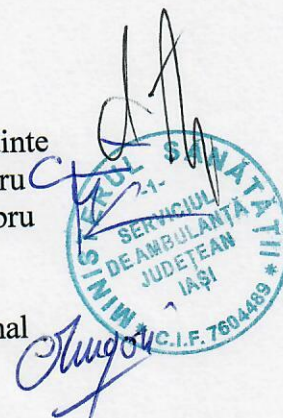 inte
ru
bru
nal
MINISTERUL SĂNĂTĂȚII
-1-
SERVICIUL
DE AMBULANȚĂ
JUDEȚEAN
IAȘI
* C.I.F. 7604489 *